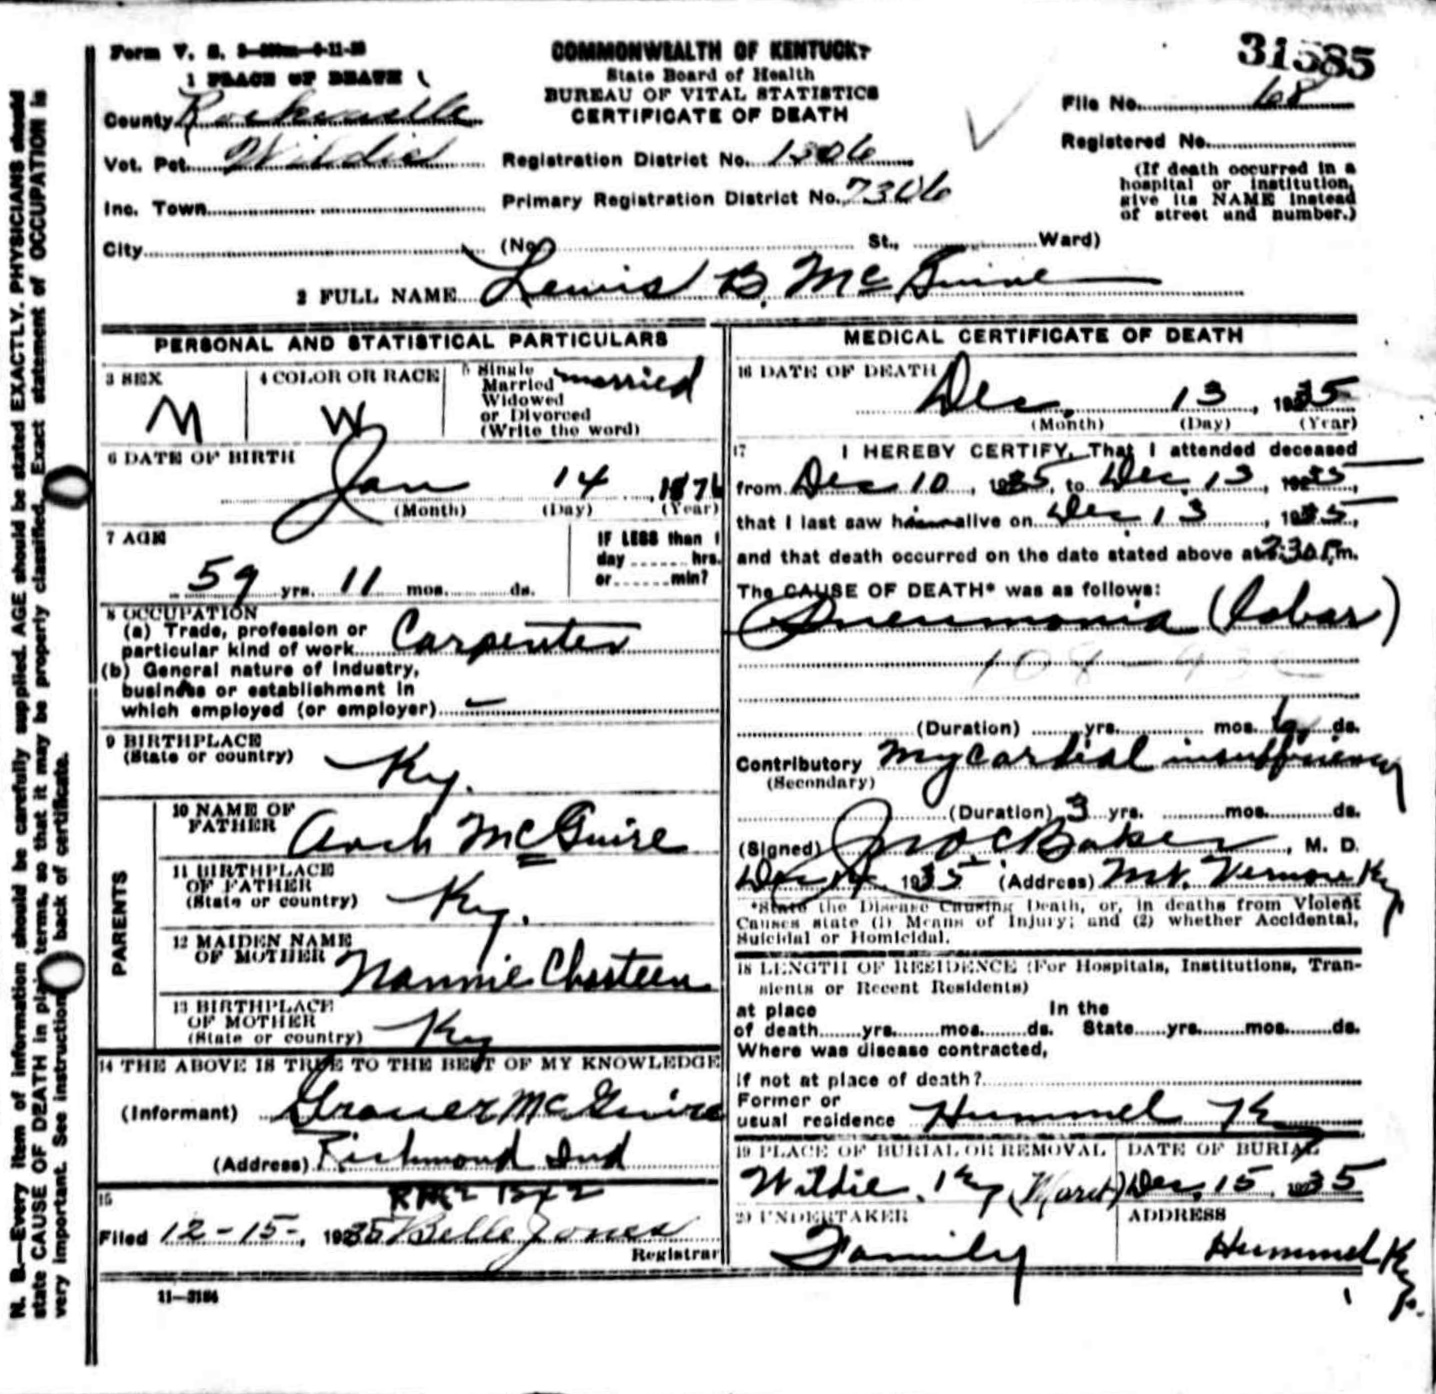 Form V. S.
COMMONWEALTH OF KENTUCKY
31585
1 PLACE OF DEATH
State Board of Health
BUREAU OF VITAL STATISTICS
CERTIFICATE OF DEATH
File No. 68
County Rockcastle
Registered No.
Vot. Pct. Wildie
Registration District No. 1306
(If death occurred in a
hospital or institution,
give its NAME instead
of street and number.)
Inc. Town
Primary Registration District No. 7306
City (No. St., Ward)
2 FULL NAME Lewis B. McGuire
PERSONAL AND STATISTICAL PARTICULARS
3 SEX
M
4 COLOR OR RACE
W
5 Single
Married
Widowed
or Divorced
(Write the word)
married
6 DATE OF BIRTH
Jan 14, 1876
(Month) (Day) (Year)
7 AGE
59 yrs. 11 mos. ds.
IF LESS than 1
day hrs.
or min?
8 OCCUPATION
(a) Trade, profession or
particular kind of work Carpenter
(b) General nature of industry,
business or establishment in
which employed (or employer) —
9 BIRTHPLACE
(State or country)
Ky.
PARENTS
10 NAME OF
FATHER
Arch McGuire
11 BIRTHPLACE
OF FATHER
(State or country)
Ky.
12 MAIDEN NAME
OF MOTHER
Nannie Chasteen
13 BIRTHPLACE
OF MOTHER
(State or country)
Ky
14 THE ABOVE IS TRUE TO THE BEST OF MY KNOWLEDGE
(Informant) Grover McGuire
(Address) Richmond Ind
15
Filed 12-15-, 1935 Belle Jones
Registrar
11—3184
MEDICAL CERTIFICATE OF DEATH
16 DATE OF DEATH
Dec. 13, 1935
(Month) (Day) (Year)
17 I HEREBY CERTIFY, That I attended deceased
from Dec 10, 1935, to Dec. 13, 1935,
that I last saw him alive on Dec 13, 1935,
and that death occurred on the date stated above at 2:30 P.m.
The CAUSE OF DEATH* was as follows:
Pneumonia (lobar)
108
(Duration) yrs. mos. ds.
Contributory Mycardial insufficiency
(Secondary)
(Duration) 3 yrs. mos. ds.
(Signed) Baker, M. D.
Dec 1935 (Address) Mt. Vernon Ky
*State the Disease Causing Death, or, in deaths from Violent
Causes state (1) Means of Injury; and (2) whether Accidental,
Suicidal or Homicidal.
18 LENGTH OF RESIDENCE (For Hospitals, Institutions, Tran-
sients or Recent Residents)
at place In the
of death yrs. mos. ds. State yrs. mos. ds.
Where was disease contracted,
if not at place of death?
Former or
usual residence Hummel Ky
19 PLACE OF BURIAL OR REMOVAL
DATE OF BURIAL
Wildie, Ky
Dec. 15, 1935
20 UNDERTAKER
ADDRESS
Family
Hummel Ky.
N. B.—Every item of information should be carefully supplied. AGE should be stated EXACTLY. PHYSICIANS should
state CAUSE OF DEATH in plain terms, so that it may be properly classified. Exact statement of OCCUPATION is
very important. See instruction back of certificate.